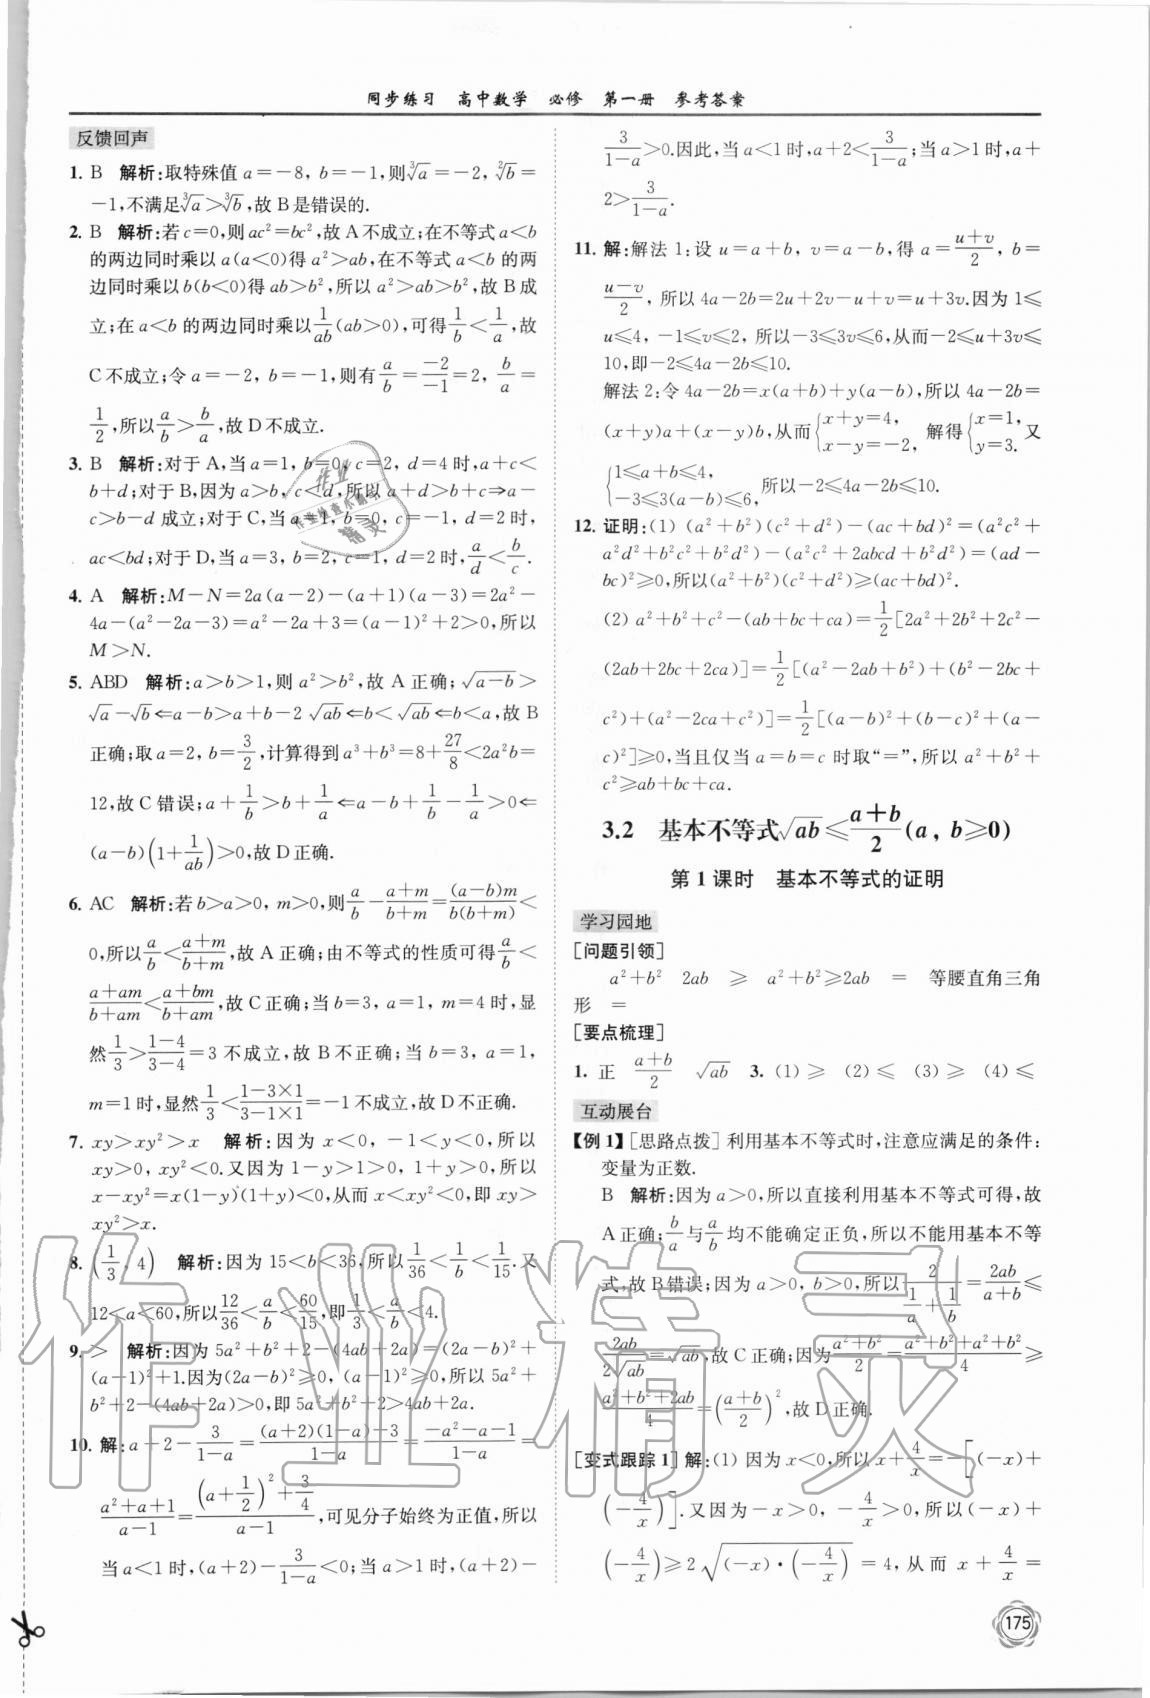 同步练习 高中数学 必修 第一册 参考答案
反馈回声
1. B 解析:取特殊值 a=-8, b=-1,则∛a=-2, ∛b=
-1,不满足∛a>∛b,故 B 是错误的.
2. B 解析:若 c=0,则 ac²=bc²,故 A 不成立;在不等式 a<b
的两边同时乘以 a(a<0)得 a²>ab,在不等式 a<b 的两
边同时乘以 b(b<0)得 ab>b²,所以 a²>ab>b²,故 B 成
立;在 a<b 的两边同时乘以 1/ab (ab>0),可得 1/b < 1/a,故
C 不成立;令 a=-2, b=-1,则有 a/b = -2/-1 =2, b/a =
1/2,所以 a/b > b/a,故 D 不成立.
3. B 解析:对于 A,当 a=1, b=0, c=2, d=4 时,a+c<
b+d;对于 B,因为 a>b, c<d,所以 a+d>b+c⇒a-
c>b-d 成立;对于 C,当 a=1, b=0, c=-1, d=2 时,
ac<bd;对于 D,当 a=3, b=2, c=1, d=2 时, a/d < b/c.
4. A 解析:M-N=2a(a-2)-(a+1)(a-3)=2a²-
4a-(a²-2a-3)=a²-2a+3=(a-1)²+2>0,所以
M>N.
5. ABD 解析:a>b>1,则 a²>b²,故 A 正确;√(a-b)>
√a-√b⇐a-b>a+b-2√ab⇐b<√ab⇐b<a,故 B
正确;取 a=2, b=3/2,计算得到 a³+b³=8+27/8<2a²b=
12,故 C 错误;a+1/b>b+1/a⇐a-b+1/b-1/a>0⇐
(a-b)(1+1/ab)>0,故 D 正确.
6. AC 解析:若 b>a>0, m>0,则 a/b-(a+m)/(b+m)=(a-b)m/b(b+m)<
0,所以 a/b<(a+m)/(b+m),故 A 正确;由不等式的性质可得 a/b<
(a+am)/(b+am)<(a+bm)/(b+am),故 C 正确;当 b=3, a=1, m=4 时,显
然 1/3>(1-4)/(3-4)=3 不成立,故 B 不正确;当 b=3, a=1,
m=1 时,显然 1/3<(1-3×1)/(3-1×1)=-1 不成立,故 D 不正确.
7. xy>xy²>x 解析:因为 x<0, -1<y<0,所以
xy>0, xy²<0.又因为 1-y>1>0, 1+y>0,所以
x-xy²=x(1-y)(1+y)<0,从而 x<xy²<0,即 xy>
xy²>x.
8. (1/3, 4) 解析:因为 15<b<36,所以 1/36<1/b<1/15.又
12<a<60,所以 12/36<a/b<60/15,即 1/3<a/b<4.
9. > 解析:因为 5a²+b²+2-(4ab+2a)=(2a-b)²+
(a-1)²+1.因为(2a-b)²≥0, (a-1)²≥0,所以 5a²+
b²+2-(4ab+2a)>0,即 5a²+b²+2>4ab+2a.
10. 解:a+2-3/(1-a)=((a+2)(1-a)-3)/(1-a)=(-a²-a-1)/(1-a)=
(a²+a+1)/(a-1)=((a+1/2)²+3/4)/(a-1),可见分子始终为正值,所以
当 a<1 时,(a+2)-3/(1-a)<0;当 a>1 时,(a+2)-
3/(1-a)>0.因此,当 a<1 时,a+2<3/(1-a);当 a>1 时,a+
2>3/(1-a).
11. 解:解法 1:设 u=a+b, v=a-b,得 a=(u+v)/2, b=
(u-v)/2,所以 4a-2b=2u+2v-u+v=u+3v.因为 1≤
u≤4, -1≤v≤2,所以-3≤3v≤6,从而-2≤u+3v≤
10,即-2≤4a-2b≤10.
解法 2:令 4a-2b=x(a+b)+y(a-b),所以 4a-2b=
(x+y)a+(x-y)b,从而{x+y=4, x-y=-2, 解得{x=1, y=3. 又
{1≤a+b≤4, -3≤3(a-b)≤6, 所以-2≤4a-2b≤10.
12. 证明:(1) (a²+b²)(c²+d²)-(ac+bd)²=(a²c²+
a²d²+b²c²+b²d²)-(a²c²+2abcd+b²d²)=(ad-
bc)²≥0,所以(a²+b²)(c²+d²)≥(ac+bd)².
(2) a²+b²+c²-(ab+bc+ca)=1/2[2a²+2b²+2c²-
(2ab+2bc+2ca)]=1/2[(a²-2ab+b²)+(b²-2bc+
c²)+(a²-2ca+c²)]=1/2[(a-b)²+(b-c)²+(a-
c)²]≥0,当且仅当 a=b=c 时取“=”,所以 a²+b²+
c²≥ab+bc+ca.
3.2 基本不等式√ab≤(a+b)/2(a, b≥0)
第 1 课时 基本不等式的证明
学习园地
[问题引领]
a²+b² 2ab ≥ a²+b²≥2ab = 等腰直角三角
形 =
[要点梳理]
1. 正 (a+b)/2 √ab 3. (1) ≥ (2) ≤ (3) ≥ (4) ≤
互动展台
【例 1】[思路点拨] 利用基本不等式时,注意应满足的条件:
变量为正数.
B 解析:因为 a>0,所以直接利用基本不等式可得,故
A 正确;b/a 与 a/b 均不能确定正负,所以不能用基本不等
式,故 B 错误;因为 a>0, b>0,所以 2/(1/a+1/b)=2ab/(a+b)≤
2ab/2√ab=√ab,故 C 正确;因为 (a²+b²)/2=(a²+b²+a²+b²)/4≥
(a²+b²+2ab)/4=((a+b)/2)²,故 D 正确.
[变式跟踪 1] 解:(1) 因为 x<0,所以 x+4/x=-[(-x)+
(-4/x)].又因为-x>0, -4/x>0,所以(-x)+
(-4/x)≥2√((-x)·(-4/x))=4,从而 x+4/x=
175
作业精灵
作业检查小精灵